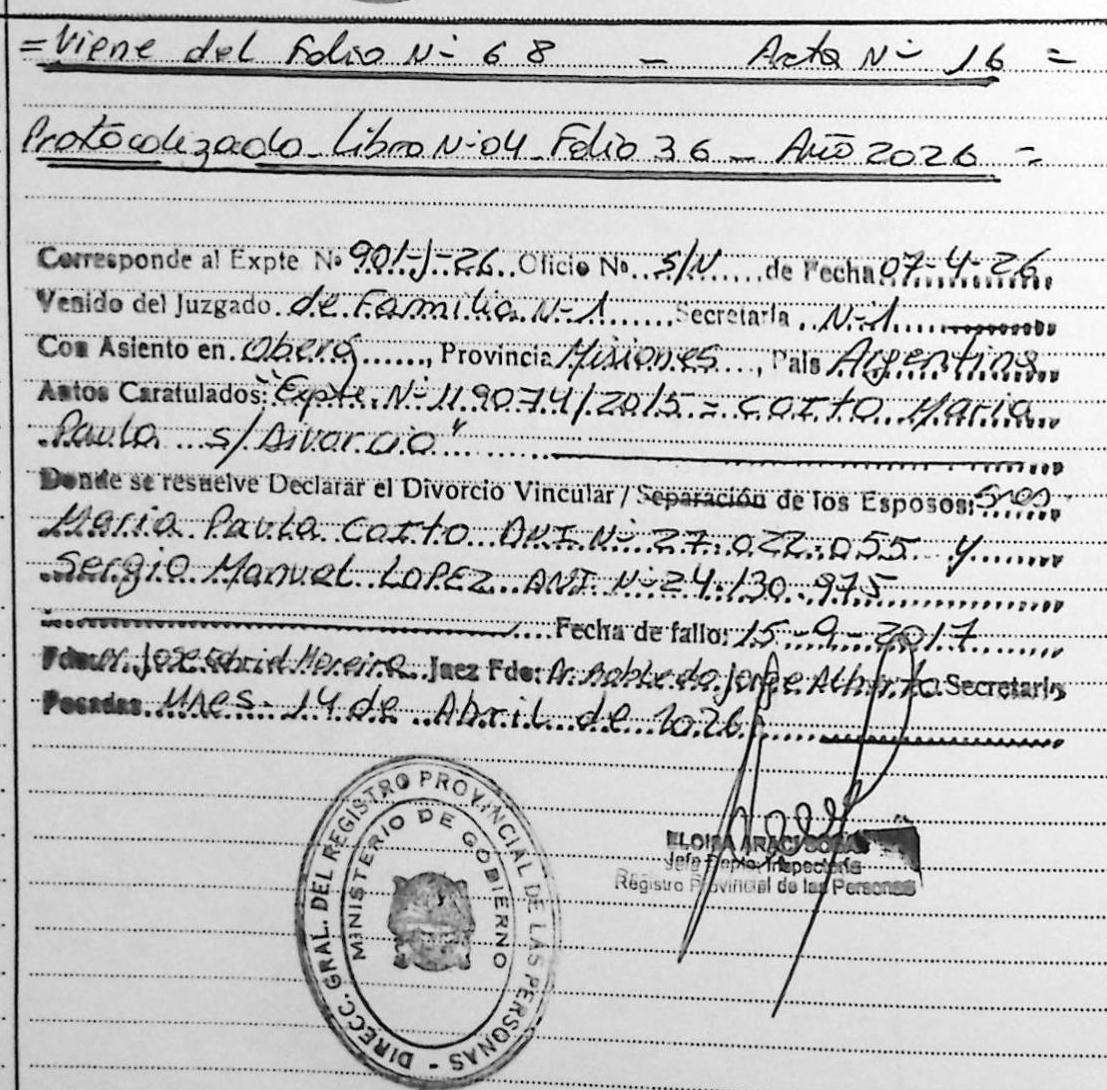 = Viene del Folio N- 68 - Acta N- 16 =
Protocolizado Libro N-04 Folio 36 - Año 2026 -
Corresponde al Expte Nº 901-J-26 Oficio Nº S/N de Fecha 07-4-26
Venido del Juzgado de Familia N-1 Secretaría N-1
Con Asiento en Oberá, Provincia Misiones, País Argentina
Autos Caratulados: "Expte. N- 119074/2015 = COTTO Maria
Paula s/ Divorcio"
Donde se resuelve Declarar el Divorcio Vincular / Separación de los Esposos: Sres
Maria Paula COTTO DNI N- 27.022.055 y
Sergio Manuel LOPEZ DNI N- 24.130.975
Fecha de fallo: 15-9-2017
Fdo: Dr. Jose Gabriel Moreira Juez Fdo: Dr. Robledo Jorge Alberto Secretario
Posadas, Mnes. 14 de Abril de 2026
DIRECC. GRAL. DEL REGISTRO PROVINCIAL DE LAS PERSONAS -
MINISTERIO DE GOBIERNO
ELOISA ARACI SOSA
Jefa Depto. Inspectoría
Registro Provincial de las Personas